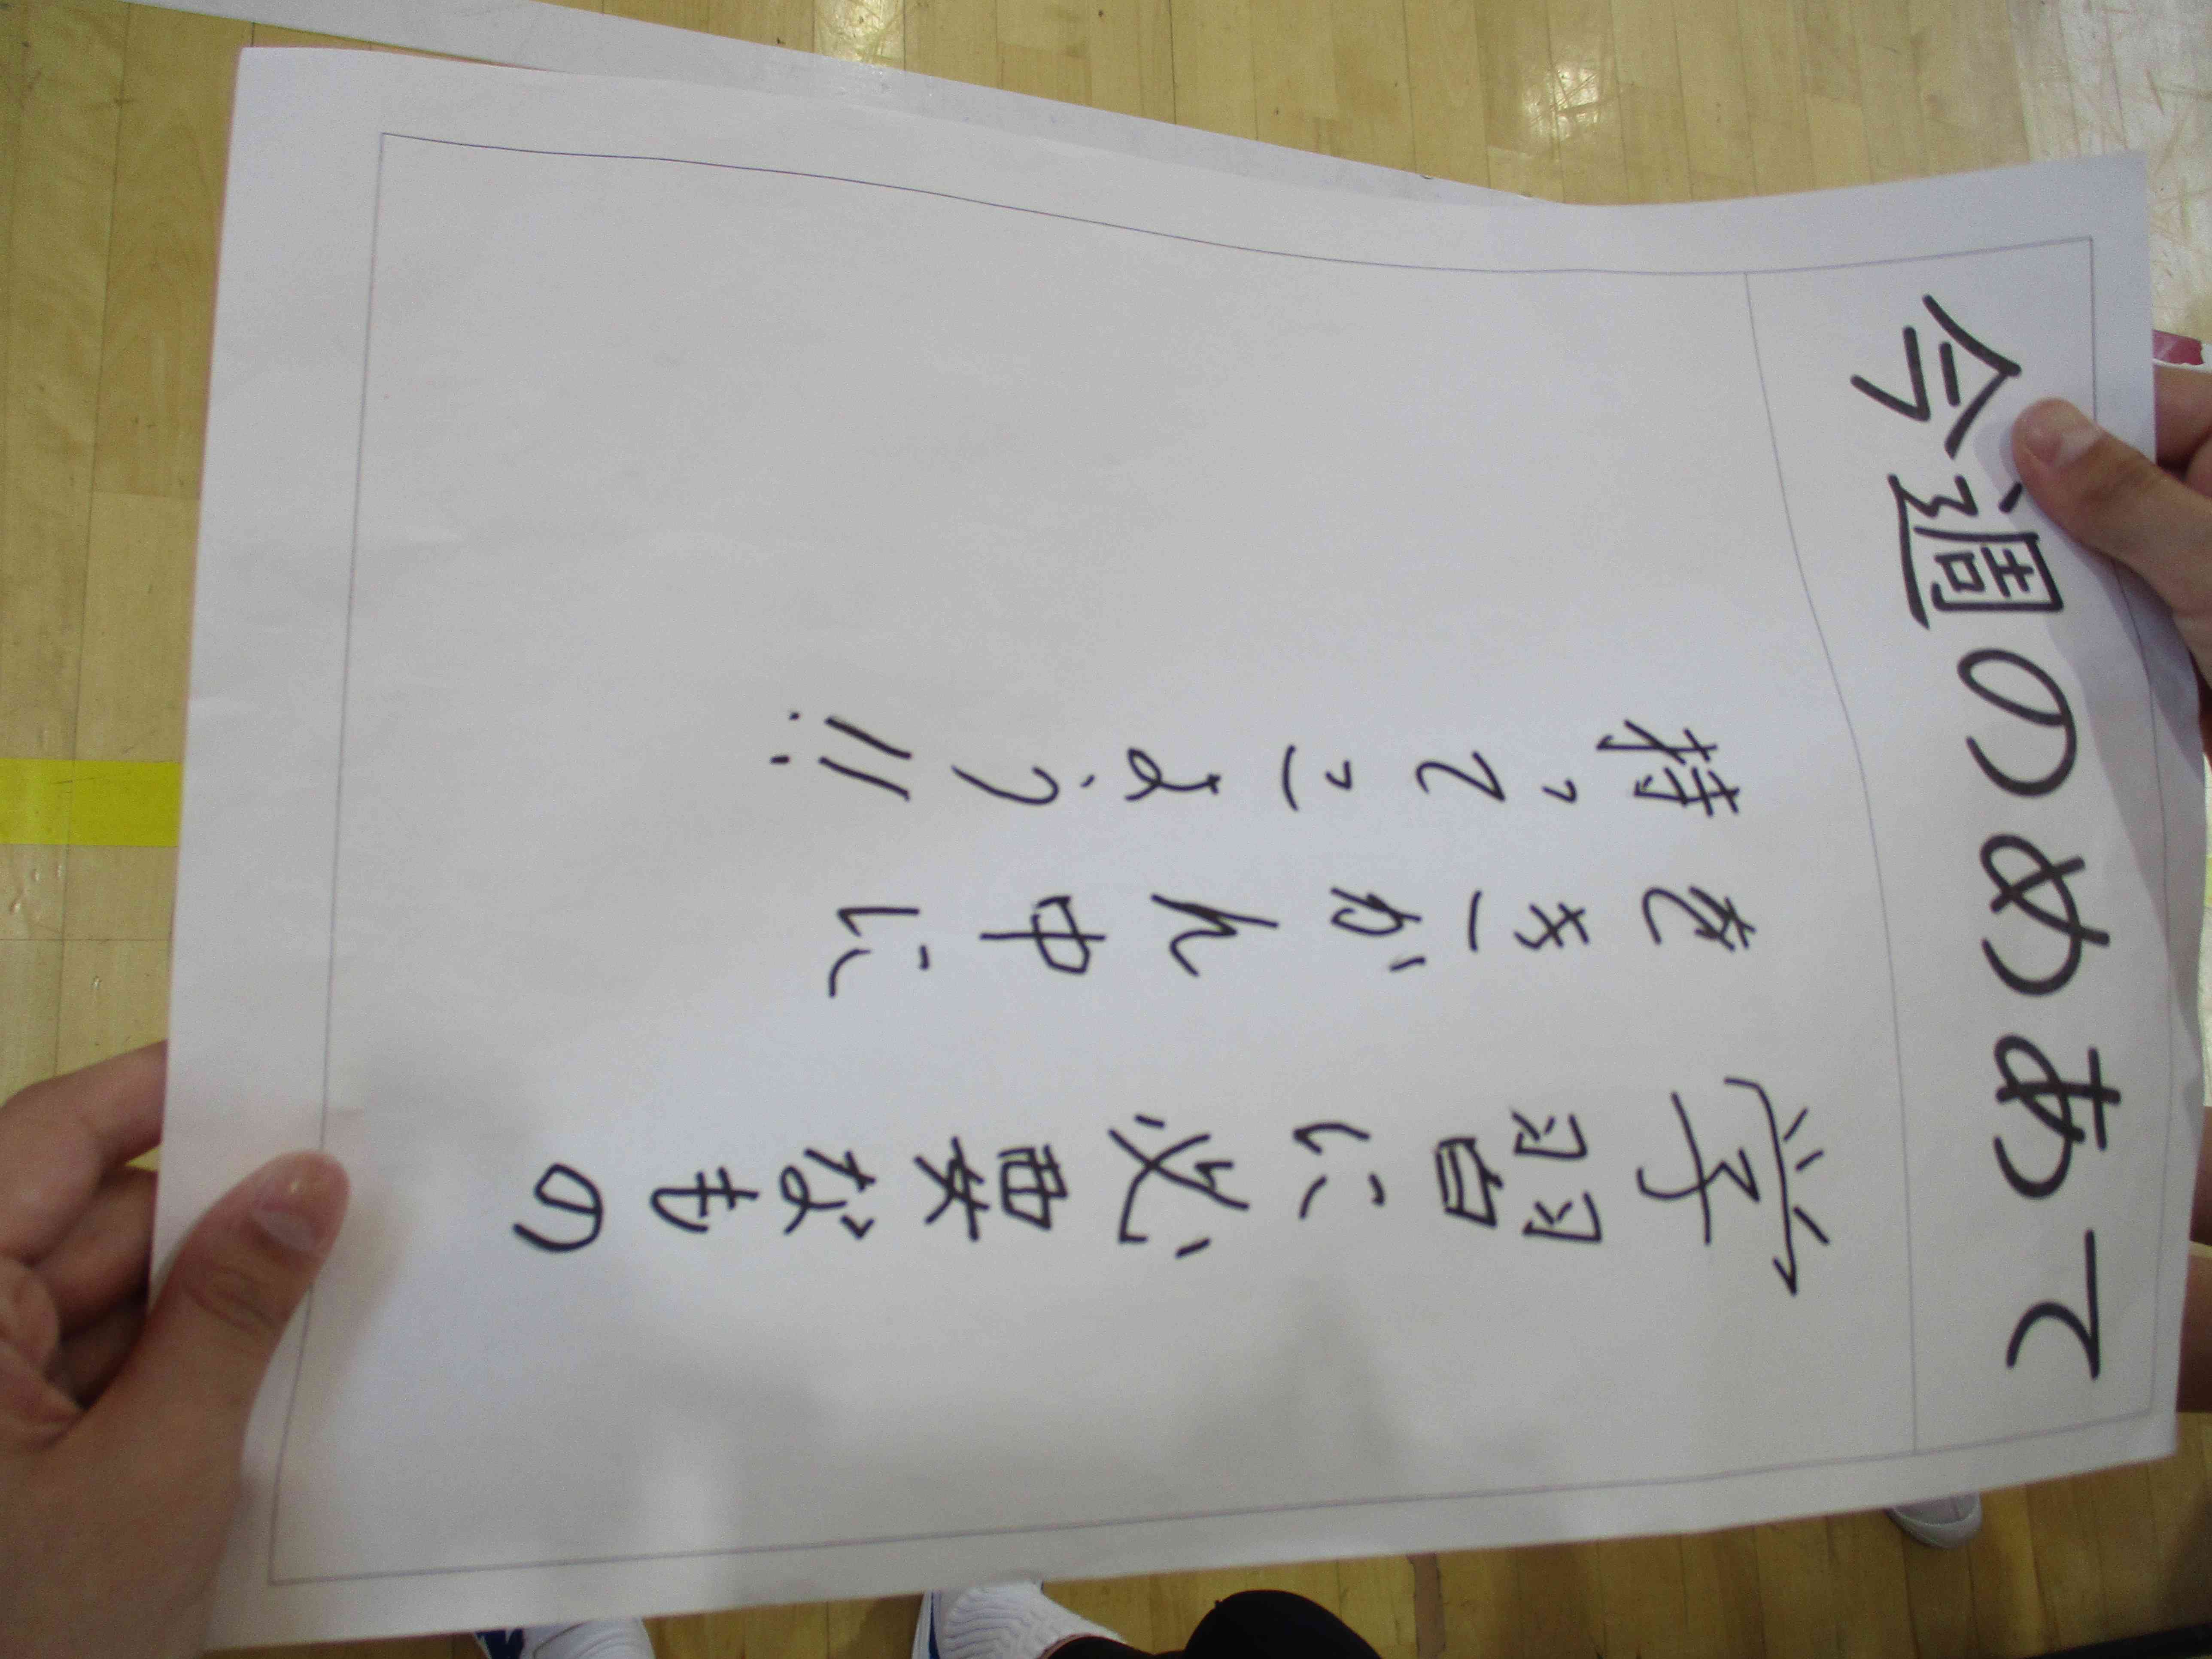 今週のめあて
学習に必要なもの
をきーがん中に
持ってこよう!!